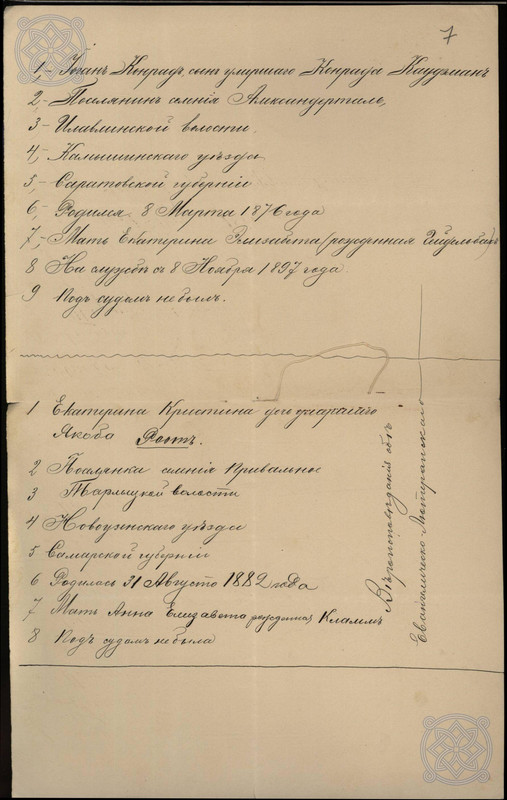 7
1, Іоганъ Конрадъ, сынъ умершаго Конрада Кауфманъ
2, Поселянинъ селенія Александерталь,
3 Иловлинской волости,
4, Камышинскаго уѣзда
5, Саратовской губерніи
6, Родился 8 Марта 1876 года
7, Мать Екатерина Элизабета (рожденная
8 На службѣ съ 8 Ноября 1897 года
9 Подъ судомъ не былъ.
1 Екатерина Кристина дочь умершаго
Якоба Ротъ.
2 Поселянка селенія Привальное
3 Тарлыцкой волости
4 Новоузенскаго уѣзда
5 Самарской губерніи
6 Родилась 31 Августа 1882 года
7 Мать Анна Елизавета рожденная
8 Подъ судомъ не была
Вѣроисповѣданія оба
Евангелическо-Лютеранскаго